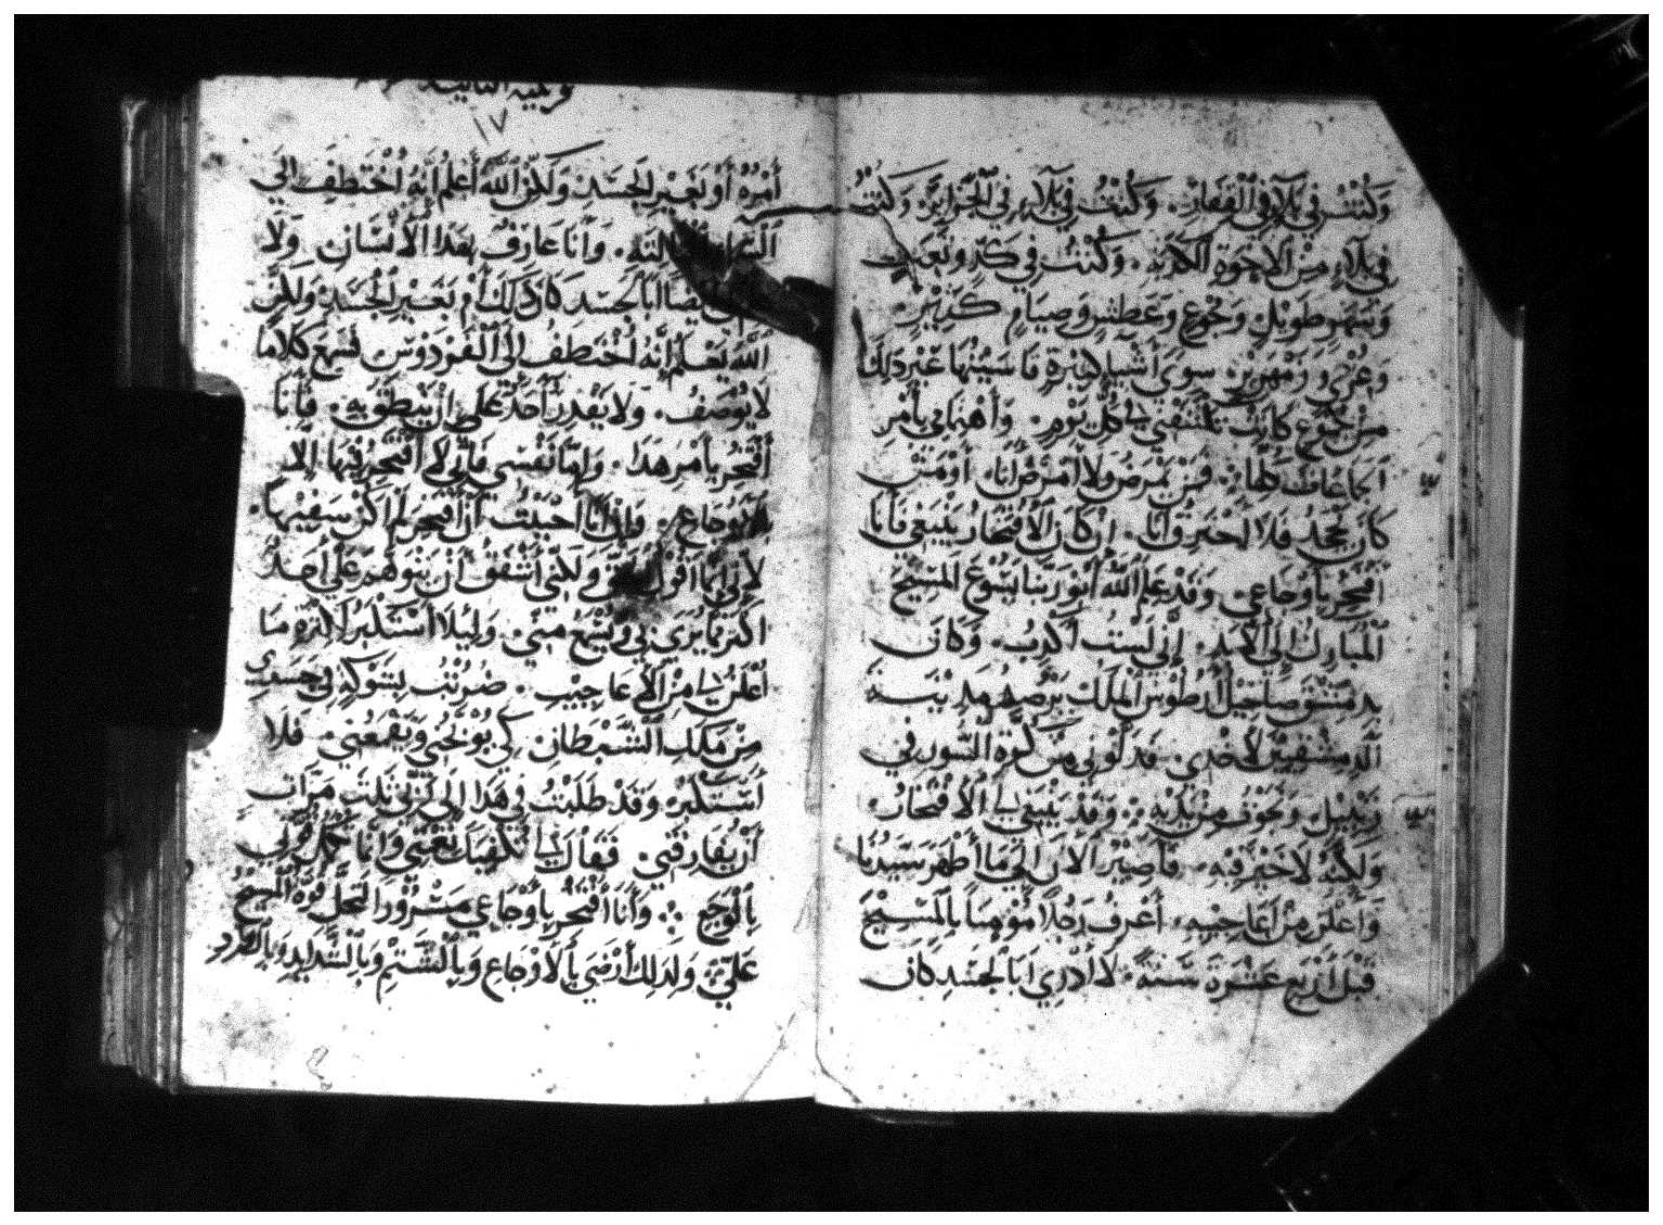 وَكُنْتُ في بَلَآءٍ فِي ٱلْقِفَارِ. وَكُنْتُ فِي بَلَآءٍ فِي ٱلْجَزَايِرِ. وَكُنْتُ
في بلاءٍ مِنَ الاخوة الكذبَة. وَكُنْتُ في كَدٍّ وتَعَبٍ
وَسَهَرٍ طَوِيلٍ وَجُوعٍ وَعَطَشٍ وَصِيَامٍ كَثِيْرٍ
وَعُرْيٍ وَزَمْهَرِيْرٍ. سِوَى أشيا كثيرةٍ مَا سَمَّيْتُهَا غَيْرَ ذَلِكَ
مِنْ جُمُوعٍ كَانَتْ تَكْتَنِفُنِي في كُلِّ يَوْمٍ. وَٱهتِمَامِي بِأَمْرِ
الجَمَاعَاتِ كلهَا. فَمَنْ يَمْرَضُ وَلَا أَمْرَضُ أَنَا. أَوْ مَنْ
كان يَجِدُ فَلا احْتَرِق أَنَا. ان كَانَ ٱلأفتخَارُ يَنْبَغِي فَأَنَا
أَفْتَخِرُ بِأَوْجَاعِي. وَقَدْ عَلِمَ اللَّهُ أَبُو رَبِّنَا يَسُوعَ المَسِيْحِ
ٱلْمُبَارَكُ إِلَى ٱلأَبَدِ. إِنِّي لَسْتُ أَكْذِبُ. وَكَانَ
بِدِمَشْقَ صَاحِبُ خَيْلِ أَرِطُوْسَ المَلِكِ يَرْصُدُ مَدِيْنَةَ
ٱلدِّمِشْقِيِّيْنَ لأَخْذِي. فَدَلُّونِي مِنْ كُوَّةِ السُّورِ فِي
زَنْبِيْلٍ وَنَجَوْتُ مِنْ يَدَيْهِ. وَقَدْ يَنْبَغِي لي الأفْتِخَارُ.
وَلكِنَّهُ لا خَيْرَ فِيْهِ. فَأَصِيْرُ الآنَ إِلَى مَا أَظْهَرَ سَيِّدُنَا
وَأَعْلَنَ مِنْ أَعَاجِيْبِهِ. أَعْرِفُ رَجُلاً مُؤْمِنَاً بِالمَسِيْحِ
قَبْلَ أَرْبَعَ عَشْرَةَ سَنَةً. لا أَدْرِي أَبِالْجَسَدِ كَانَ
١٧
أَمْرُهُ أَوْ بِغَيْرِ الجَسَدِ. وَلَكِنْ اللَّهُ أَعْلَمُ أَنَّهُ اخْتُطِفَ إِلَى
السَّمَاءِ الثَّالِثَة. وَأَنَا عَارِفٌ بِهَذَا ٱلأَنْسَانِ وَلَا
أَبِالْجَسَدِ كَانَ ذَلِكَ أَمْ بِغَيْرِ الْجَسَدِ وَلَكِنْ
اللَّهُ يَعْلَمُ إِنَّهُ اخْتُطِفَ إِلَى ٱلْفِرْدَوْسِ فسَمِعَ كَلَامَا
لا يُوْصَفُ. وَلا يَقْدِرُ أَحَدٌ عَلَى أَنْ يَنْطِقَ بِهِ. فَأَنَا
أَفْتَخِرُ بِأَمْرِ هَذَا. وَإِمَّا نَفْسِي فَإِنِّي لَا أَفْتَخِرُ فِيهَا إِلا
بِالأوجَاعِ. وَإِنْ أَنَا أَحْبَبْتُ أَنْ أَفتخر لَمْ أَكُنْ سَفِيْهَا.
لأَنِّي إِنَّمَا أَقُولُ الحَقَّ وَلَكِنِّي أُشْفِقُ أَنْ يَتَوَهَّمَ عَلَيَّ أَحَدٌ
أَكْثَرَ مِمَّا يَرَى بِي وَيُسْمَعُ مِنِّي. وَلِئَلا أَسْتَكْبِرَ لِكَثْرَةِ مَا
أُعْلِنَ لي مِنَ الأَعَاجِيْبِ. ضُرِبْتُ بِشَوْكَةٍ فِي جَسَدِي
مِنْ مَلَكِ الشَّيْطَانِ. كَي يُوْجِعَنِي وَيَقْمَعَنِي. فَلَا
أَسْتَكْبِرُ. وَقَدْ طَلَبْتُ فِي هَذَا إِلَى رَبِّي ثَلَثَ مَرَّاتٍ
أَنْ يُفَارِقَنِي. فَقَالَ لي تَكْفِيْكَ نِعْمَتِي وَإِنَّمَا تَكْمُلُ قُوَّتِي
بِٱلْوَجَعِ. وَأَنَا أَفْتَخِرُ بِأَوْجَاعِي مَسْرُوْرَاً لِتَحُلَّ قُوَّةُ المَسِيْحِ
عَلَيَّ. وَلِذَلِكَ أَرْضَى بِٱلأَوْجَاعِ وَبِٱلشَّتْمِ وَبِٱلشَّدَايِدِ